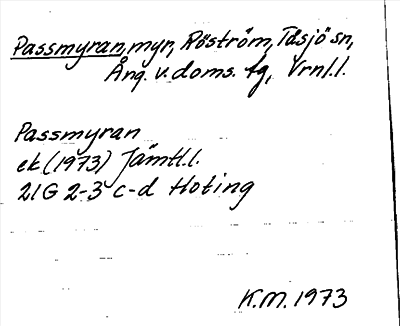 Passmyran, myr, Röström, Tåsjö sn,
Ång. v. doms. fg, Vrnl.l.
Passmyran
ek (1973) Jämtl.l.
21G 2-3 c-d Hoting
K.M. 1973